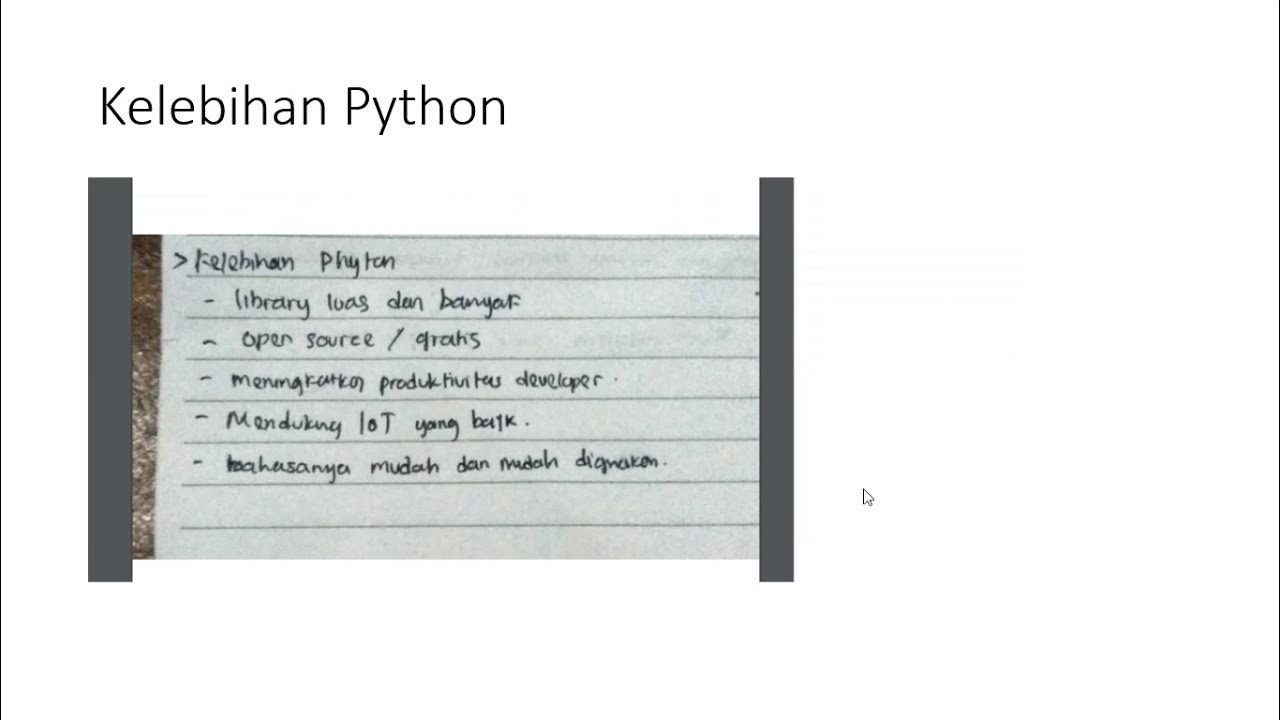 Kelebihan Python
> Kelebihan Phyton
- library luas dan banyak
- open source / gratis
- meningkatkan produktivitas developer.
- Mendukung IoT yang baik.
- bahasanya mudah dan mudah digunakan.